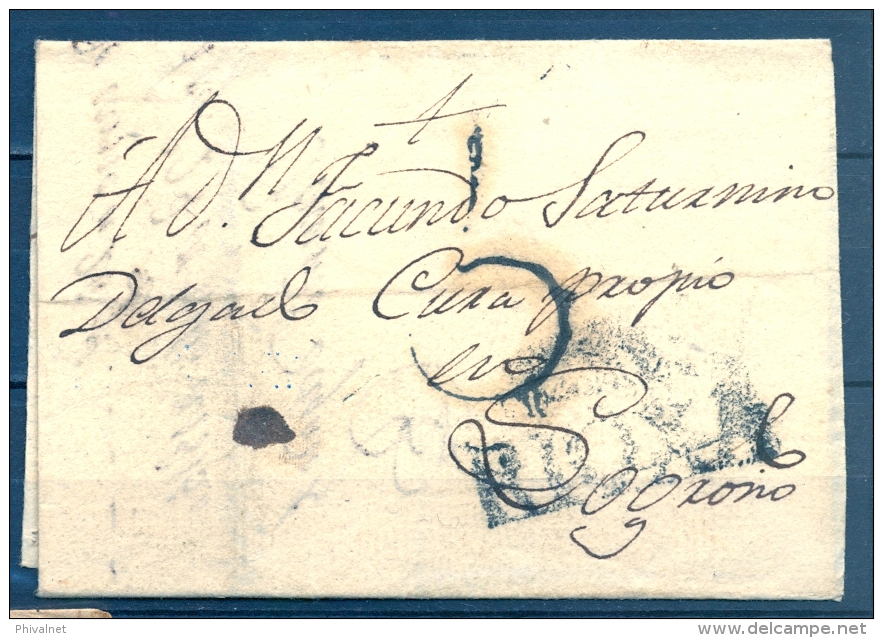 A D.n Facundo Saturnino
Delgado Cura propio
en
Logroño
RIOJA
Phivalnet
www.delcampe.net